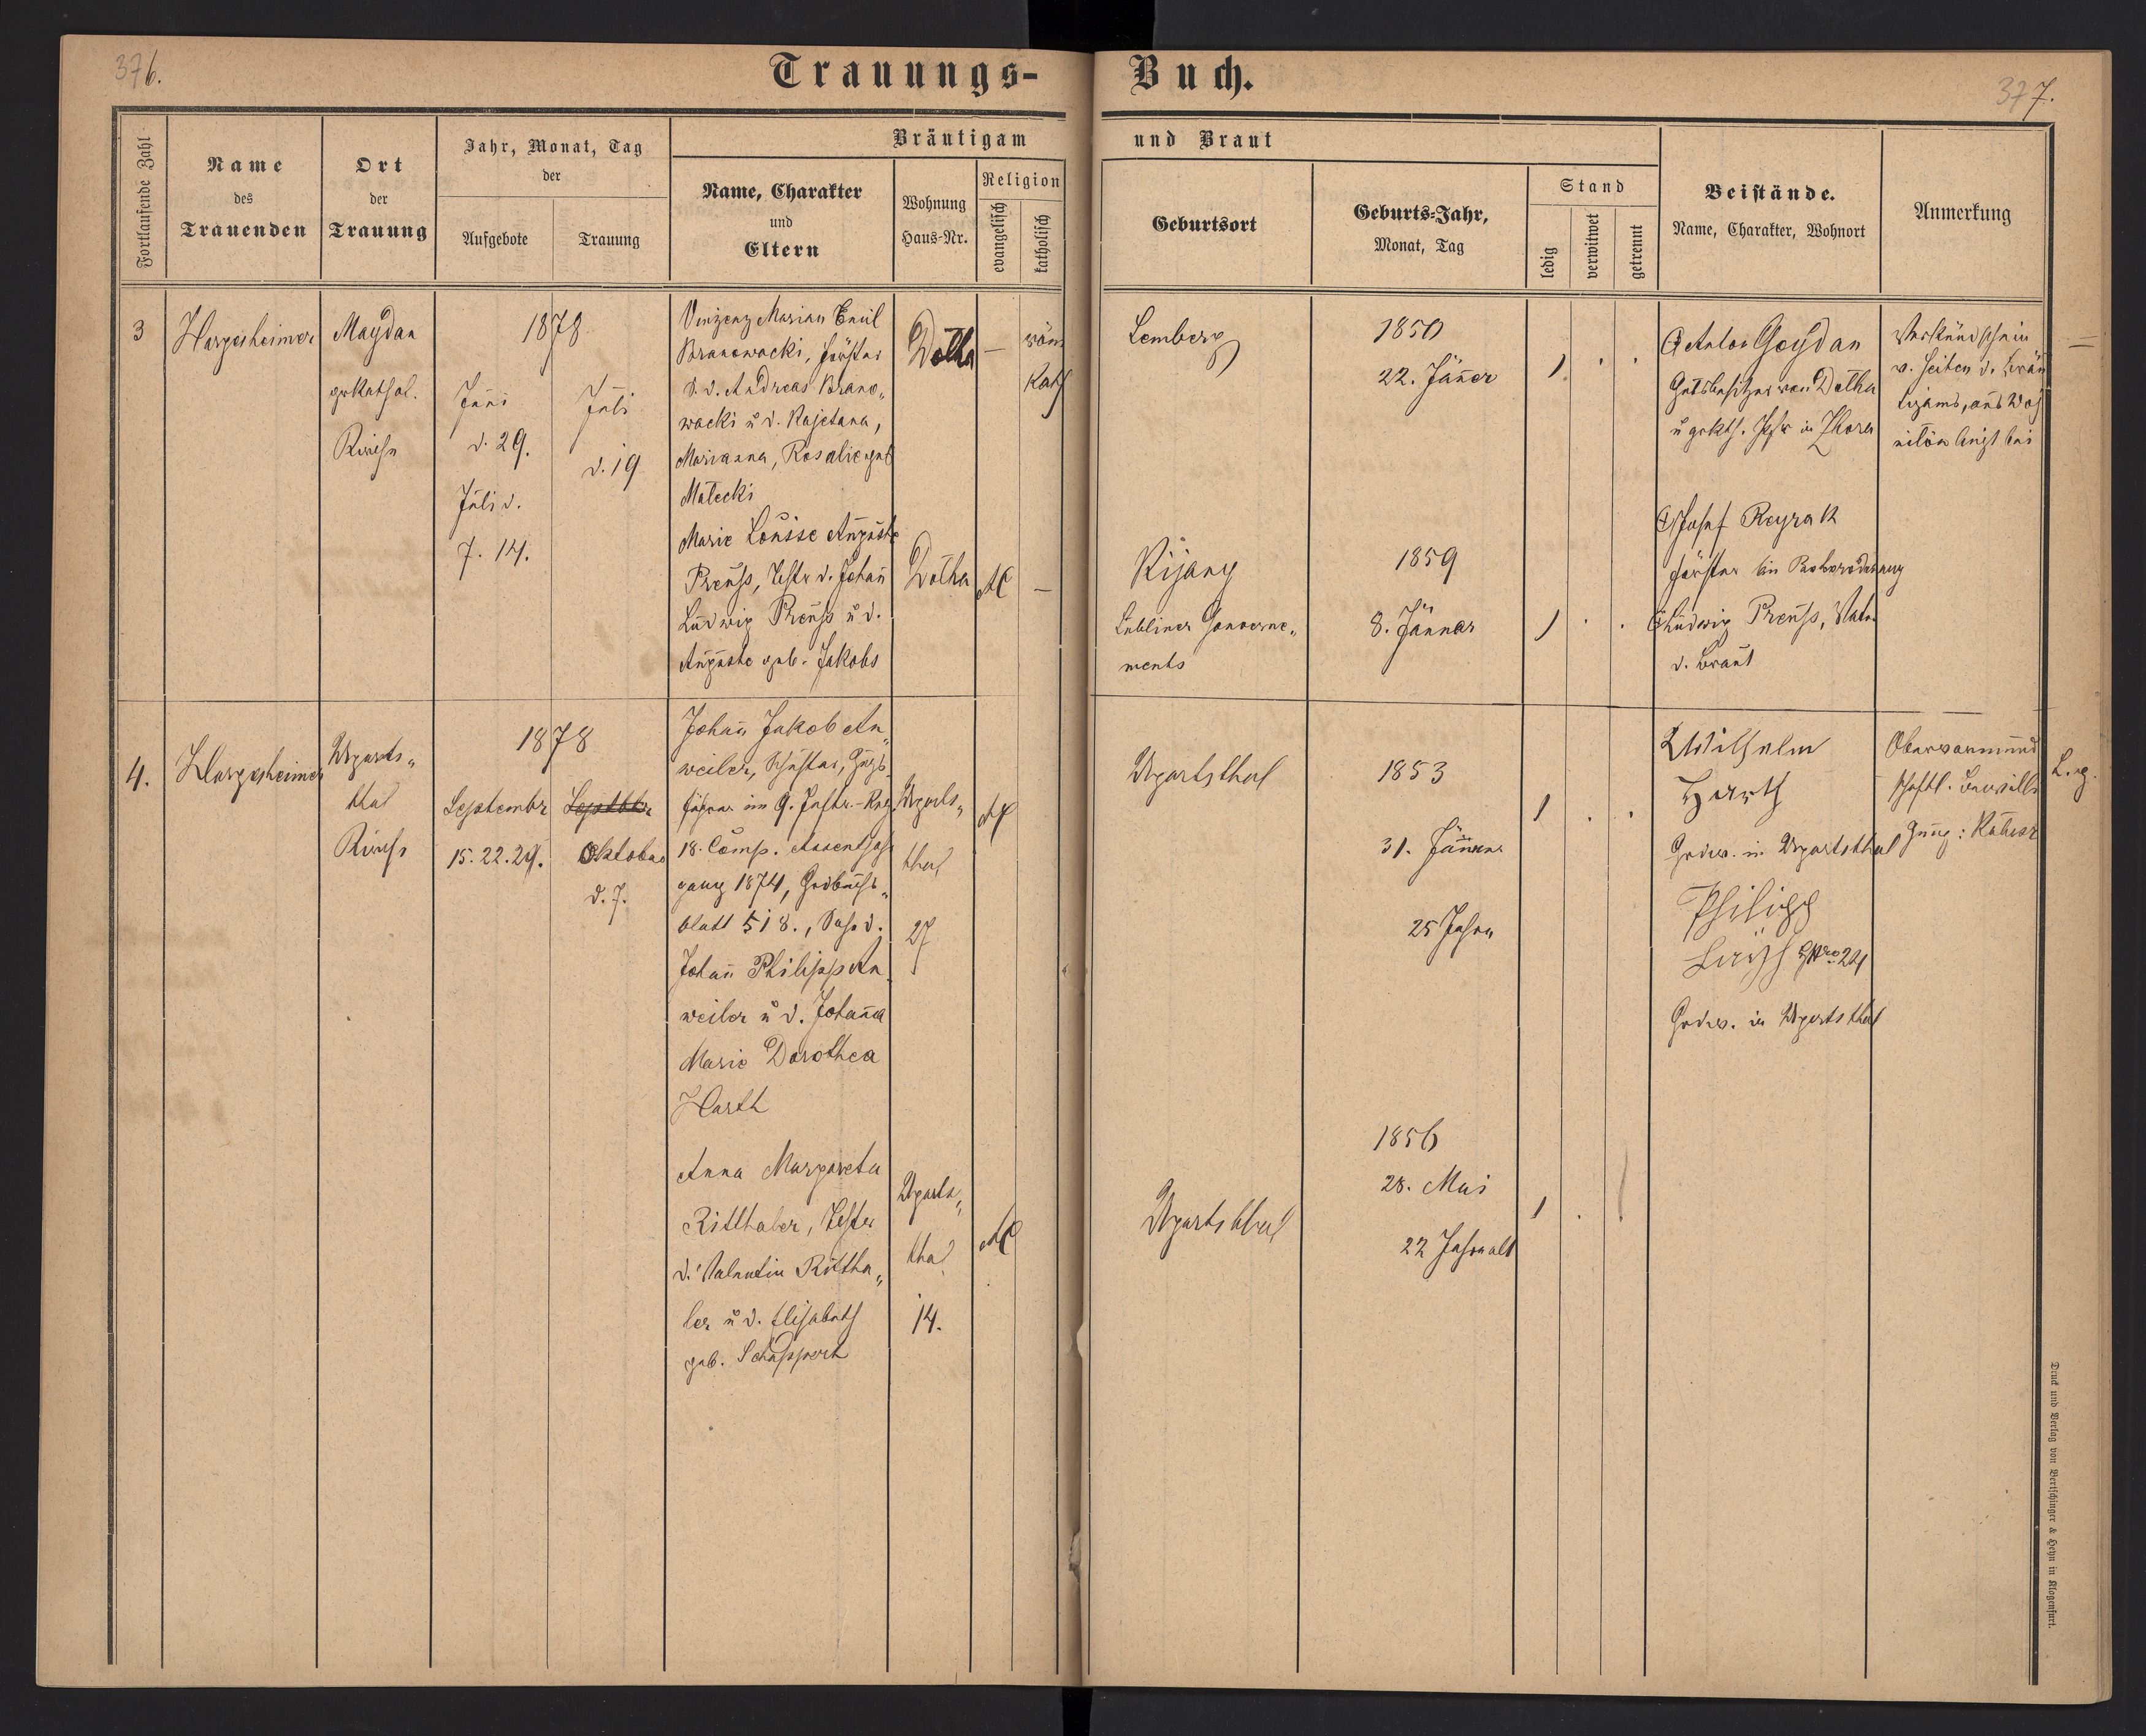 376.
Trauungs-
Buch.
377.
Fortlaufende Zahl
Name
des
Trauenden
Ort
der
Trauung
Jahr, Monat, Tag
der
Aufgebote
Trauung
Bräutigam
Name, Charakter
und
Eltern
Wohnung
Haus-Nr.
Religion
evangelisch
katholisch
und Braut
Geburtsort
Geburts-Jahr,
Monat, Tag
Stand
ledig
verwitwet
getrennt
Beistände.
Name, Charakter, Wohnort
Anmerkung
3
Hargesheimer
Maydan
grkathol.
Kirche
1878
Juni
d. 29.
Juli d.
7. 14.
Juli
d. 19
Vinzenz Marian Emil
Branowacki, Förster
S. d. Andreas Brano„
wacki u d. Kajetana,
Marianna, Rosalie geb
Malecki
Dolha
—
röm
kath
Lemberg
1850
22. Jänner
1
Anton Goydan
Gutsbesitzer von Dolha
u grkth. Pfr in
v. Seiten d. Bräu
tigams, aus
Marie Louise Auguste
Preuss, Tochter d. Johann
Ludwig Preuss u d.
Auguste geb. Jakobs
Dolha
AC
—
Kijany
Lubliner Gouverne„
ments
1859
8. Jänner
1
Josef Reyrak
Förster in
Ludwig Preuss, Vater
d. Braut
4.
Hargesheimer
Ugarts„
thal
Kirche
1878
September
15. 22. 29.
Septbr
Oktober
d. 7.
Johann Jakob An„
weiler, Schuster, Zugs„
führer im 9. Inftr.-Reg.
18. Comp. Assentjahr
gang 1874, Grdbuchs„
blatt 518., Sohn d.
Johann Philipp An„
weiler u d. Johanna
Marie Dorothea
Harth
Ugarts„
thal
27
AC
Ugartsthal
1853
31. Jänner
25 Jahre
1
Wilhelm
Harth
Grdw. in Ugartsthal
Philipp
N<sup>ro</sup> 24
Grdw. in Ugartsthal
Obervormund
schaftl. Bewilli
gung: Kalusz
Anna Margareta
Ritthaler, Tochter
d. Valentin Rittha„
ler u d. Elisabeth
geb. Schappert
Ugarts„
thal
14.
AC
Ugartsthal
1856
28. Mai
22 Jahre alt
1
Druck und Verlag von Bertschinger & Heyn in Klagenfurt.